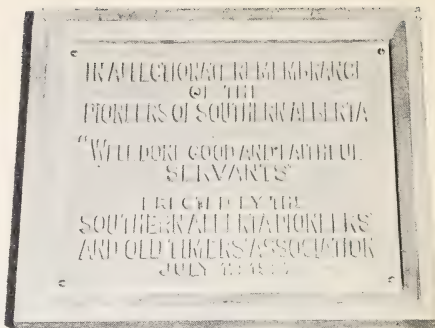 IN AFFECTIONATE REMEMBRANCE
OF THE
PIONEERS OF SOUTHERN ALBERTA
"WELL DONE GOOD AND FAITHFUL
SERVANTS"
ERECTED BY THE
SOUTHERN ALBERTA PIONEERS'
AND OLD TIMERS' ASSOCIATION
JULY